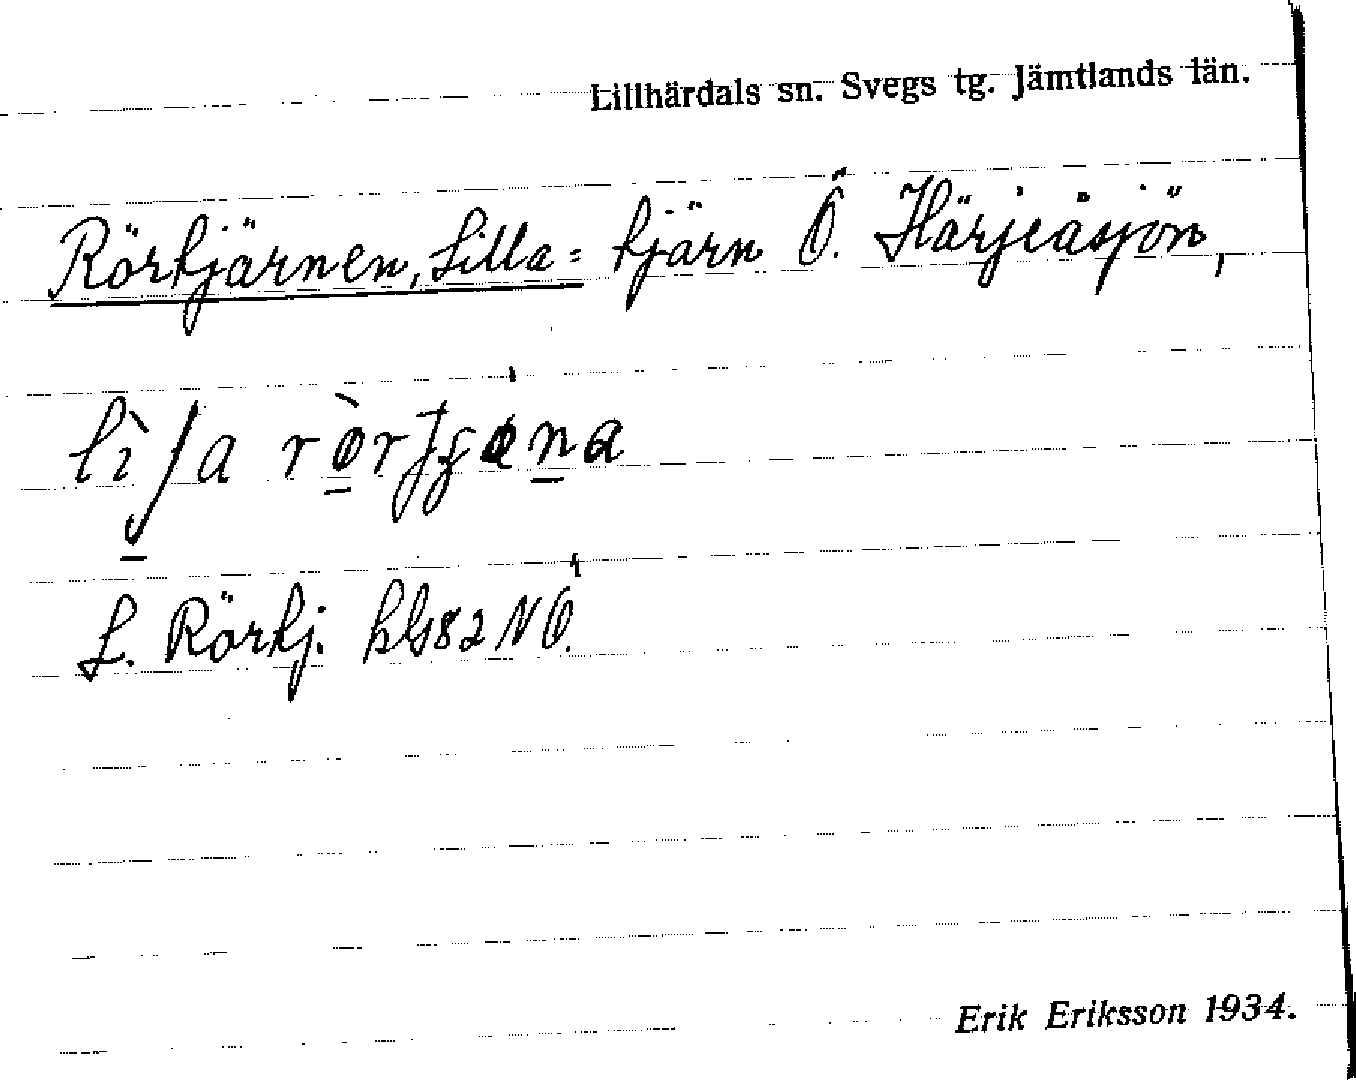 Lillhärdals sn. Svegs tg. Jämtlands län.
Rörtjärnen, Lilla = tjärn Ö. Härjeåsjön,
L. Rörtj. bl.82 NÖ.
Erik Eriksson 1934.